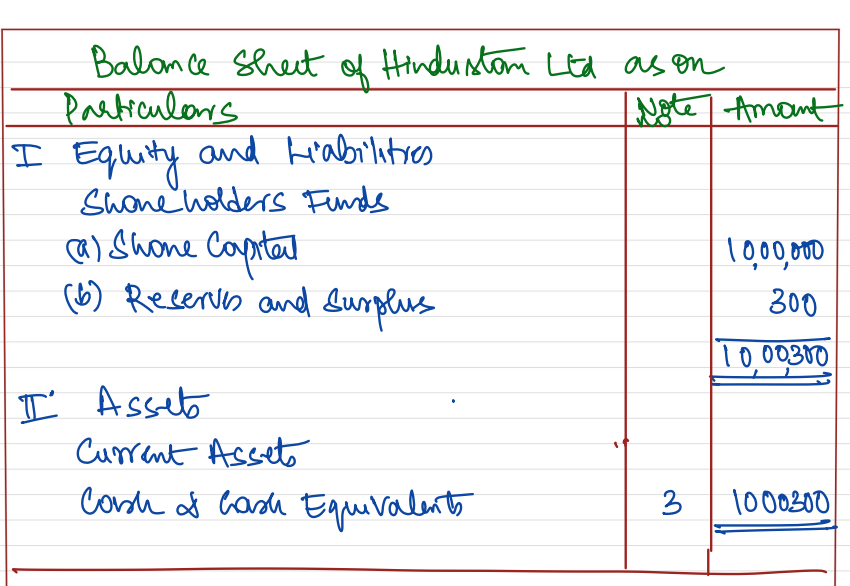 Balance Sheet of Hindustan Ltd as on
Particulars Note No Amount
I Equity and Liabilities
Shareholders Funds
(a) Share Capital 10,00,000
(b) Reserves and Surplus 300
10,00,300
II Assets
Current Assets
Cash & Cash Equivalents 3 1000300